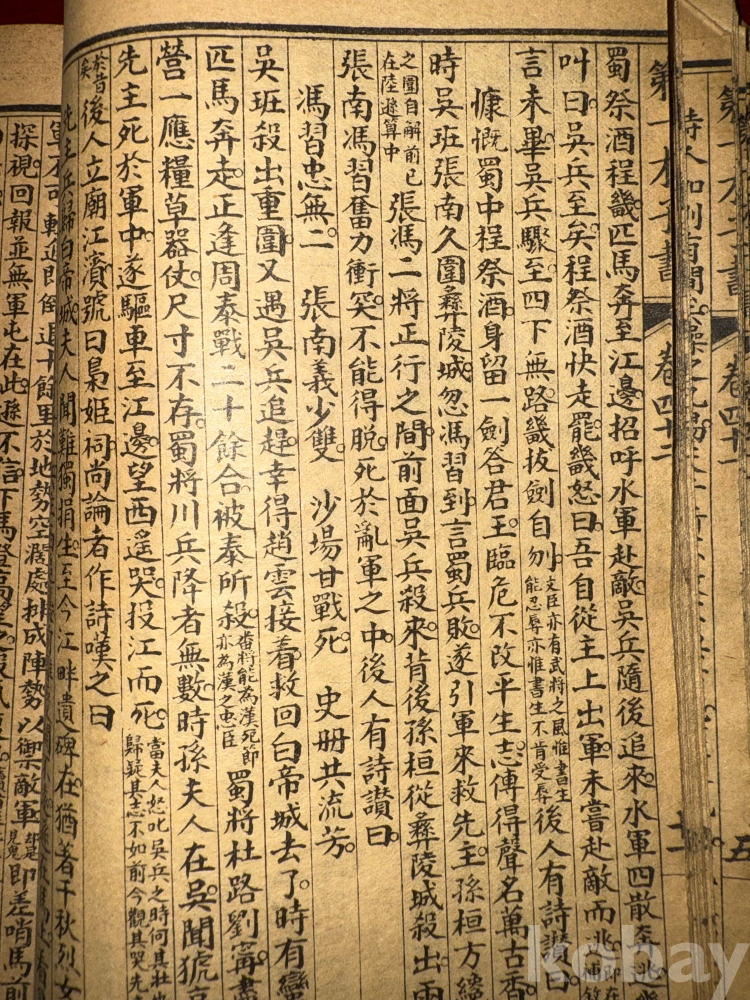 第一才子書 卷四十二
蜀祭酒程畿匹馬奔至江邊招呼水軍赴敵吳兵隨後追來水軍四散奔逃
叫曰吳兵至矣程祭酒快走罷畿怒曰吾自從主上出軍未嘗赴敵而逃
言未畢吳兵驟至四下無路畿拔劍自刎文臣亦有武將之風惟書生能忍辱亦惟書生不肯受辱後人有詩讚曰
慷慨蜀中程祭酒身留一劍答君王臨危不改平生志傳得聲名萬古香
時吳班張南久圍彝陵城忽馮習到言蜀兵敗遂引軍來救先主孫桓方纔
之圍自解前已在陸遜算中張馮二將正行之間前面吳兵殺來背後孫桓從彝陵城殺出兩
張南馮習奮力衝突不能得脫死於亂軍之中後人有詩讚曰
馮習忠無二 張南義少雙 沙場甘戰死 史冊共流芳
吳班殺出重圍又遇吳兵追趕幸得趙雲接着救回白帝城去了時有蠻
匹馬奔走正逢周泰戰二十餘合被泰所殺番將能為漢死節亦為漢之忠臣蜀將杜路劉甯盡
營一應糧草器仗尺寸不存蜀將川兵降者無數時孫夫人在吳聞猇亭
先主死於軍中遂驅車至江邊望西遙哭投江而死當夫人怒叱吳兵之時何其壯也其志不如前今觀其哭先
於昔矣後人立廟江濱號曰梟姬祠尚論者作詩嘆之曰
先主兵歸白帝城夫人聞難獨捐生至今江畔遺碑在猶著千秋烈女
軍不可輕進即倒退十餘里於地勢空濶處排成陣勢以禦敵軍却是見鬼即差哨馬前
探視回報並無軍屯在此遜不信下馬登高望之
kobay